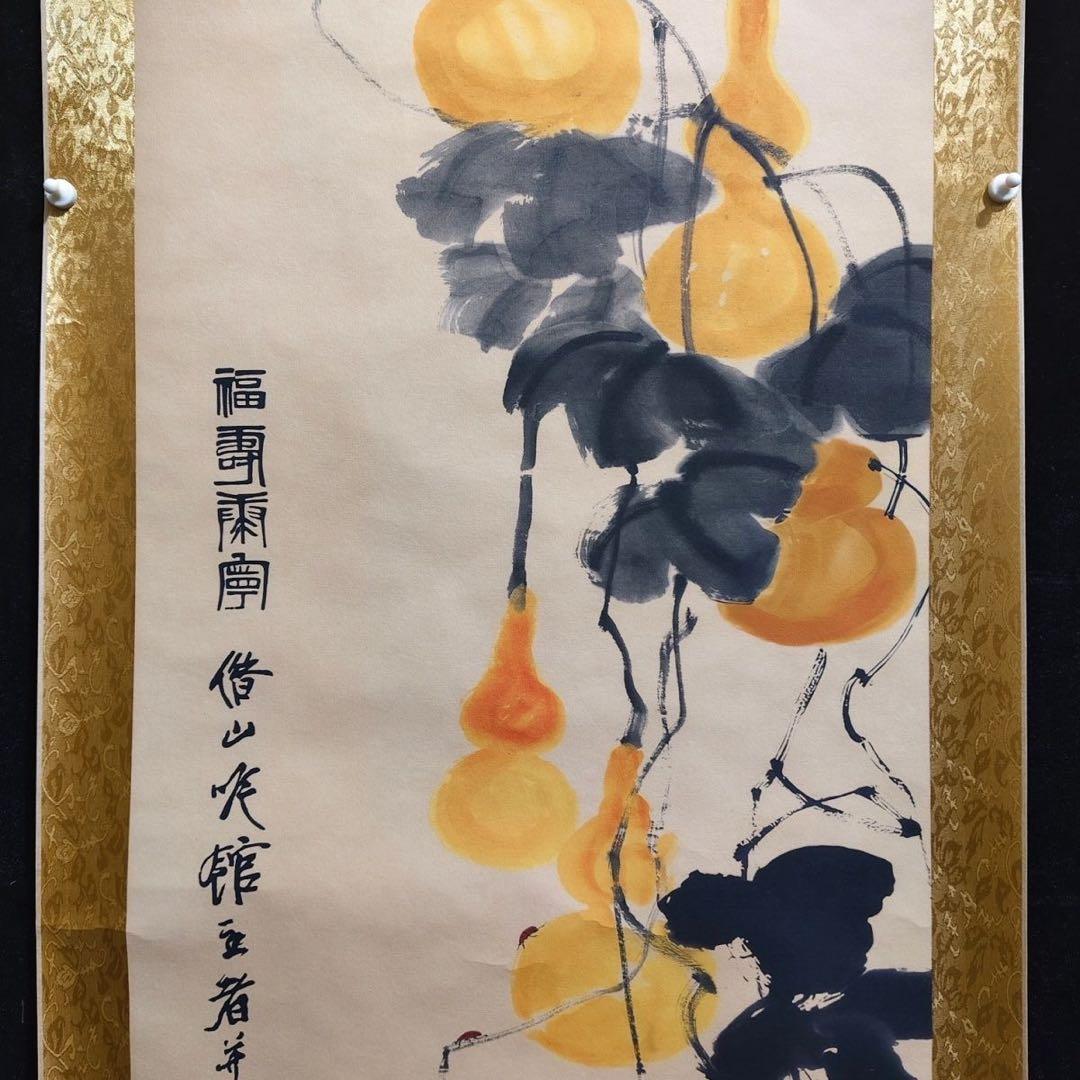 福壽康寧 借山吟館主者并